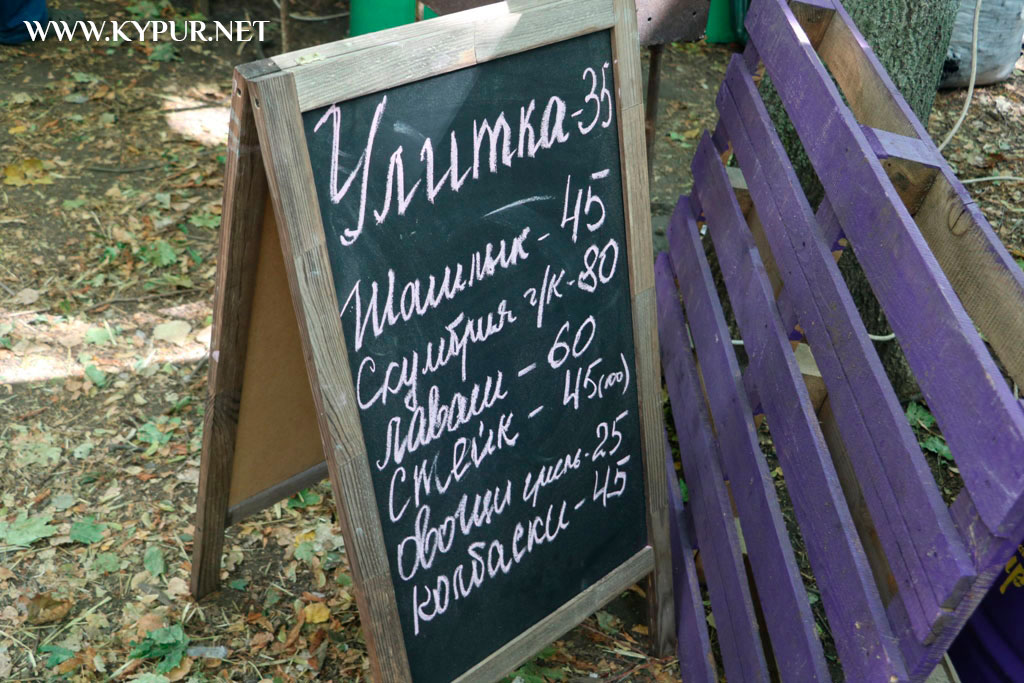 WWW.KYPUR.NET
Улитка-35
Шашлык - 45
Скумбрия г/к-80
лаваш - 60
Стейк - 45(100)
овощи гриль-25
колбаски-45